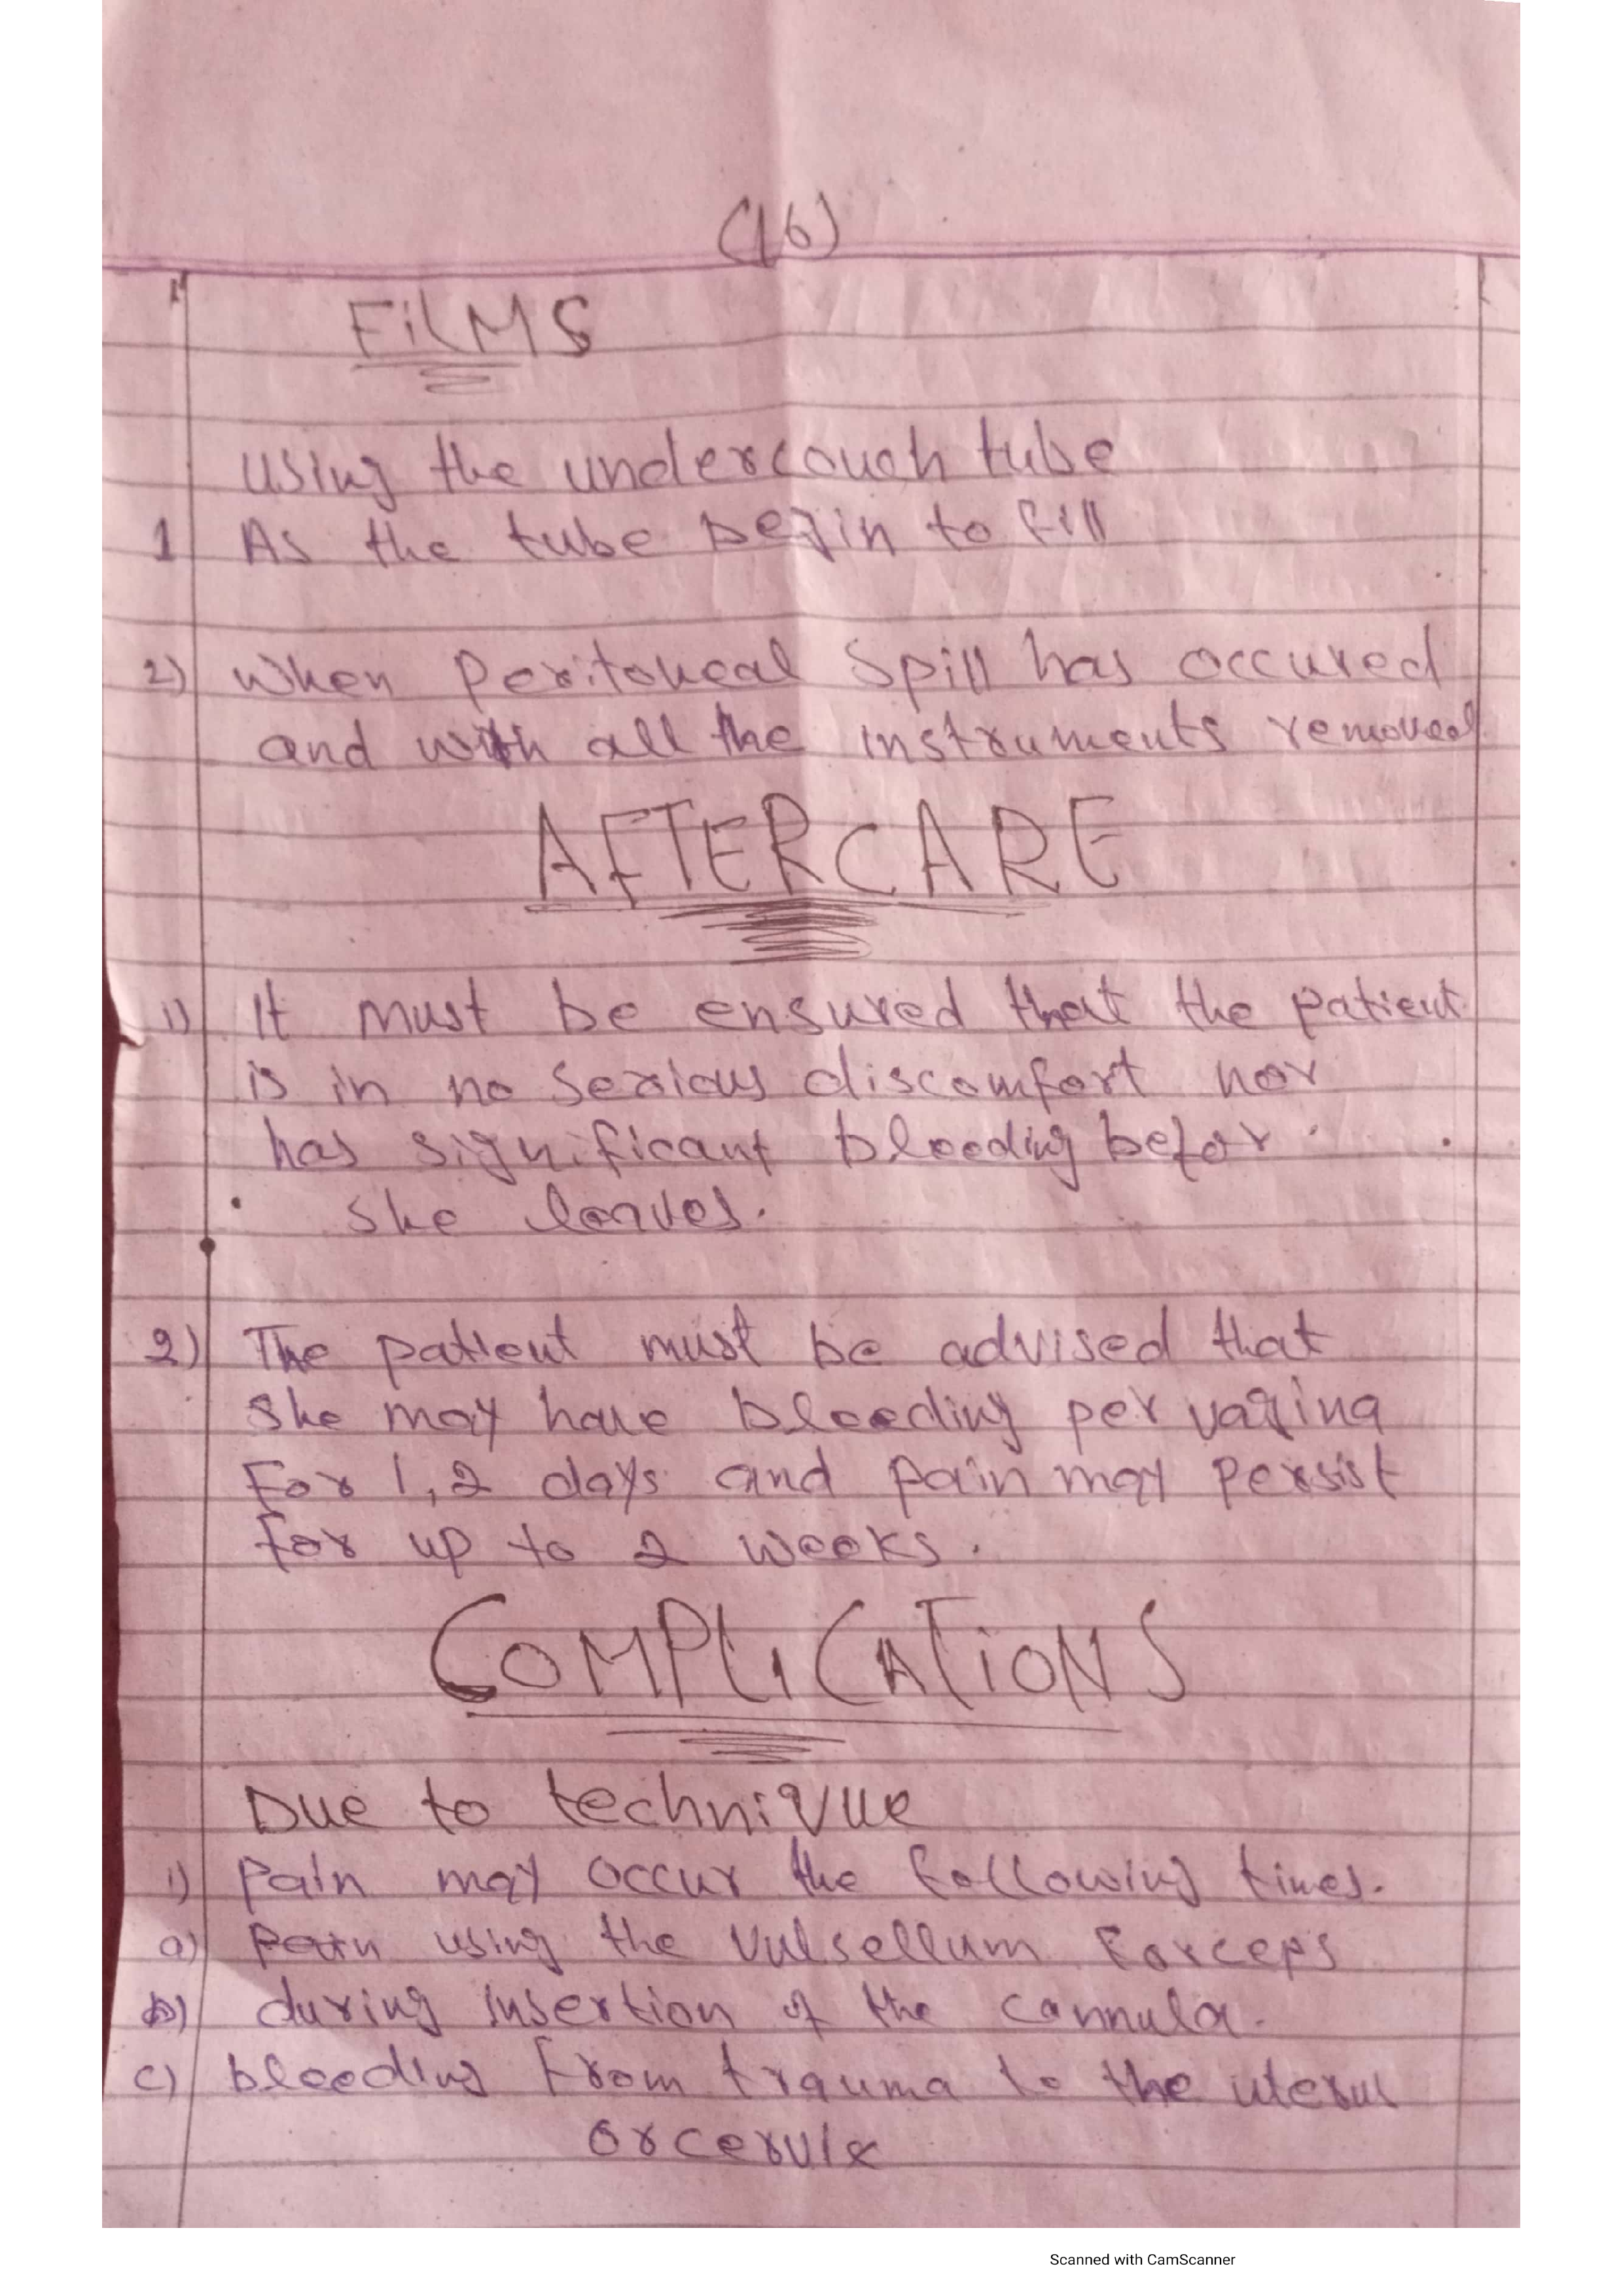 (16)
FiLMS
using the undercouch tube
1 As the tube begin to fill
2) when peritoneal spill has occured
and with all the instruments removed
AFTERCARE
1) It must be ensured that the patient
is in no serious discomfort nor
has significant bleeding befor
she leaves.
2) The patient must be advised that
she may have bleeding per vagina
For 1,2 days and pain may persist
for up to 2 weeks.
COMPLICATiONS
Due to technique
1) Pain may occur the following times.
a) Pain using the vulsellum Forceps
b) during insertion of the cannula.
c) bleeding from trauma to the uterus
or cervix
Scanned with CamScanner